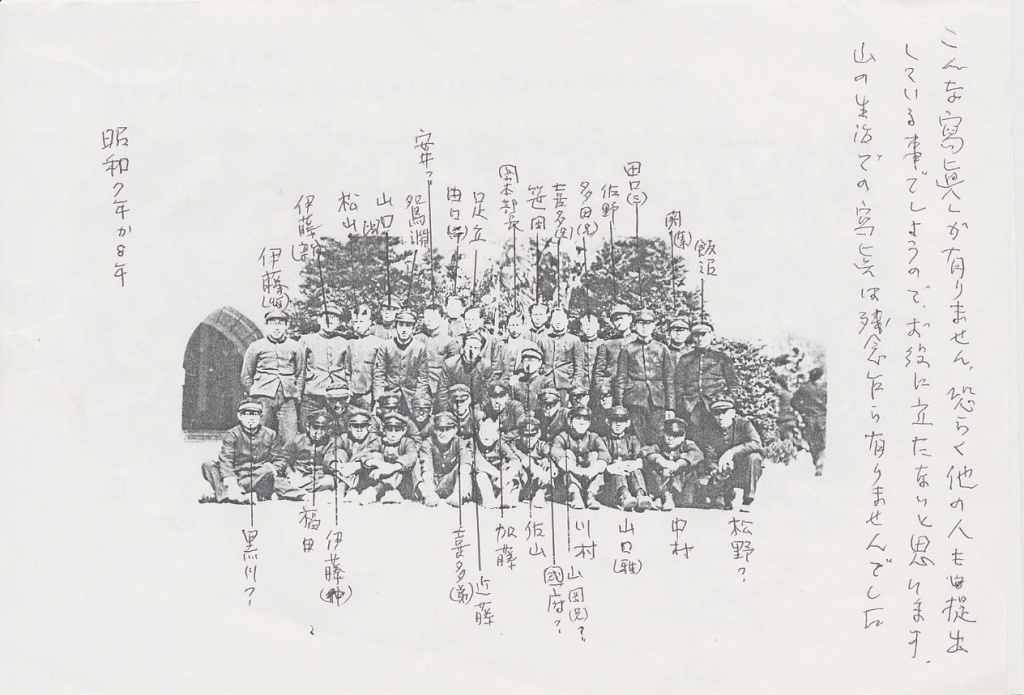 こんな寫眞しか有りません。恐らく他の人も提出
している事でしょうので、お役に立たないと思います。
山の生活での寫眞は残念乍ら有りませんでした
飯沼
南
田口(三)
佐野
多田(兄)
喜多(兄)
笹岡
岡本部長
足立
田口
安井?
鴛淵
山口
松山
伊藤
伊藤
昭和7年か8年
松野?
中村
山口(雅)
川村
山岡(兄)?
國府?
佐山
加藤
近藤
喜多(弟)
伊藤
福田
黒川?